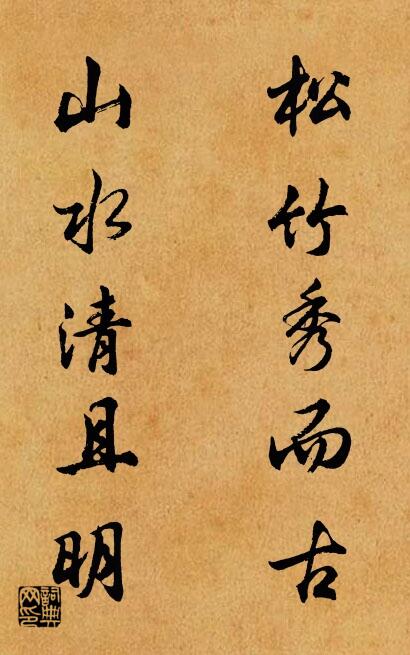 松竹秀而古
山水清且明
詞典網印